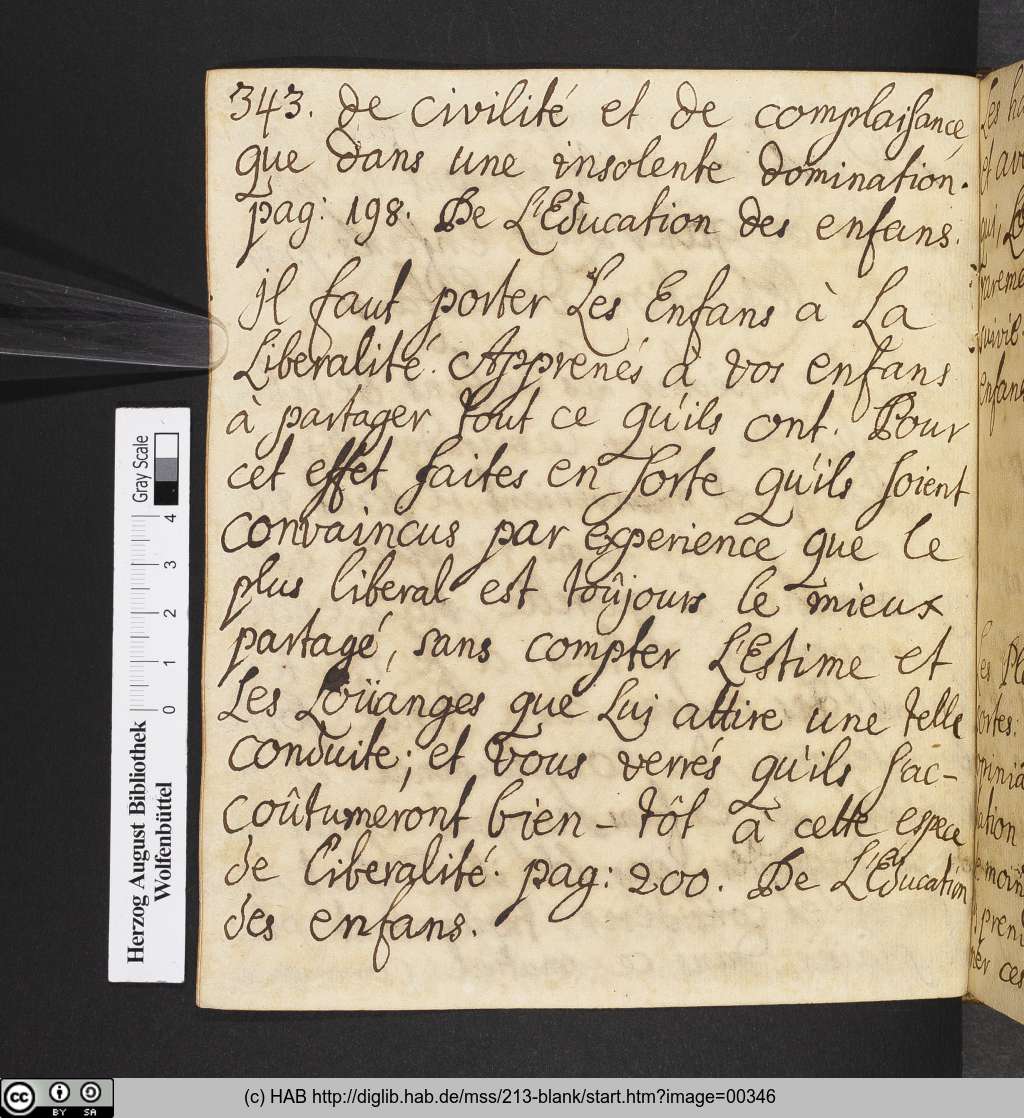 343. de civilité et de complaisance,
que dans une insolente domination.
pag: 198. De L'Education des enfans.
Il faut porter Les Enfans à La
Liberalité. Apprenés à vos enfans
à partager tout ce qu'ils ont. Pour
cet effet faites en sorte qu'ils soient
convaincus par experience que le
plus liberal est toûjours le mieux
partagé, sans compter L'Estime et
Les Loüanges que Luj attire une telle
conduite; et vous verrés qu'ils s'ac-
coûtumeront bien-tôt à cette espece
de Liberalité. pag: 200. De L'Education
des enfans.
Gray Scale
0 1 2 3 4
Herzog August Bibliothek
Wolfenbüttel
cc BY SA
(c) HAB http://diglib.hab.de/mss/213-blank/start.htm?image=00346